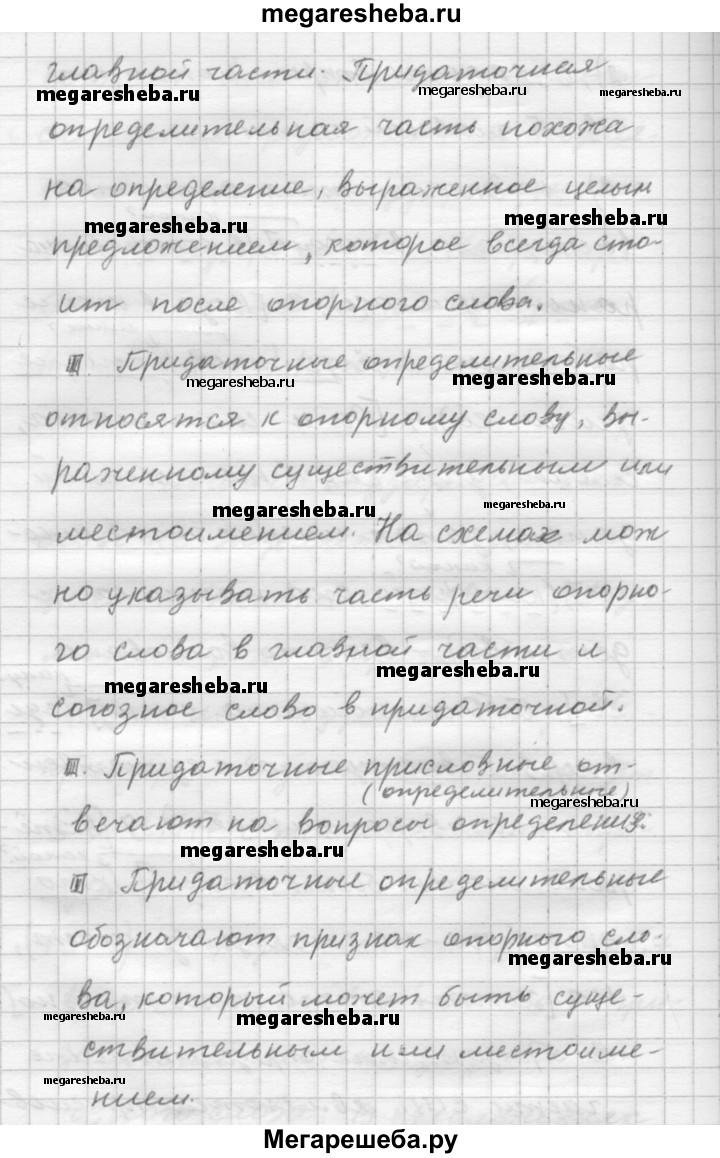 megaresheba.ru
главной части. Придаточная
megaresheba.ru megaresheba.ru
определительная часть похожа
на определение, выраженное целым
megaresheba.ru megaresheba.ru
предложением, которое всегда сто-
ит после опорного слова.
II Придаточные определительные
megaresheba.ru megaresheba.ru
относятся к опорному слову, вы-
раженному существительным или
megaresheba.ru megaresheba.ru
местоимением. На схемах мож
но указывать часть речи опорно-
го слова в главной части и
megaresheba.ru megaresheba.ru
союзное слово в придаточной.
III. Придаточные присловные от-
(определительные)
megaresheba.ru
вечают на вопросы определения.
megaresheba.ru
Придаточные определительные
обозначают признак опорного сло-
megaresheba.ru
ва, который может быть суще-
megaresheba.ru megaresheba.ru
ствительным или местоиме-
megaresheba.ru
нием.
Мегарешеба.ру